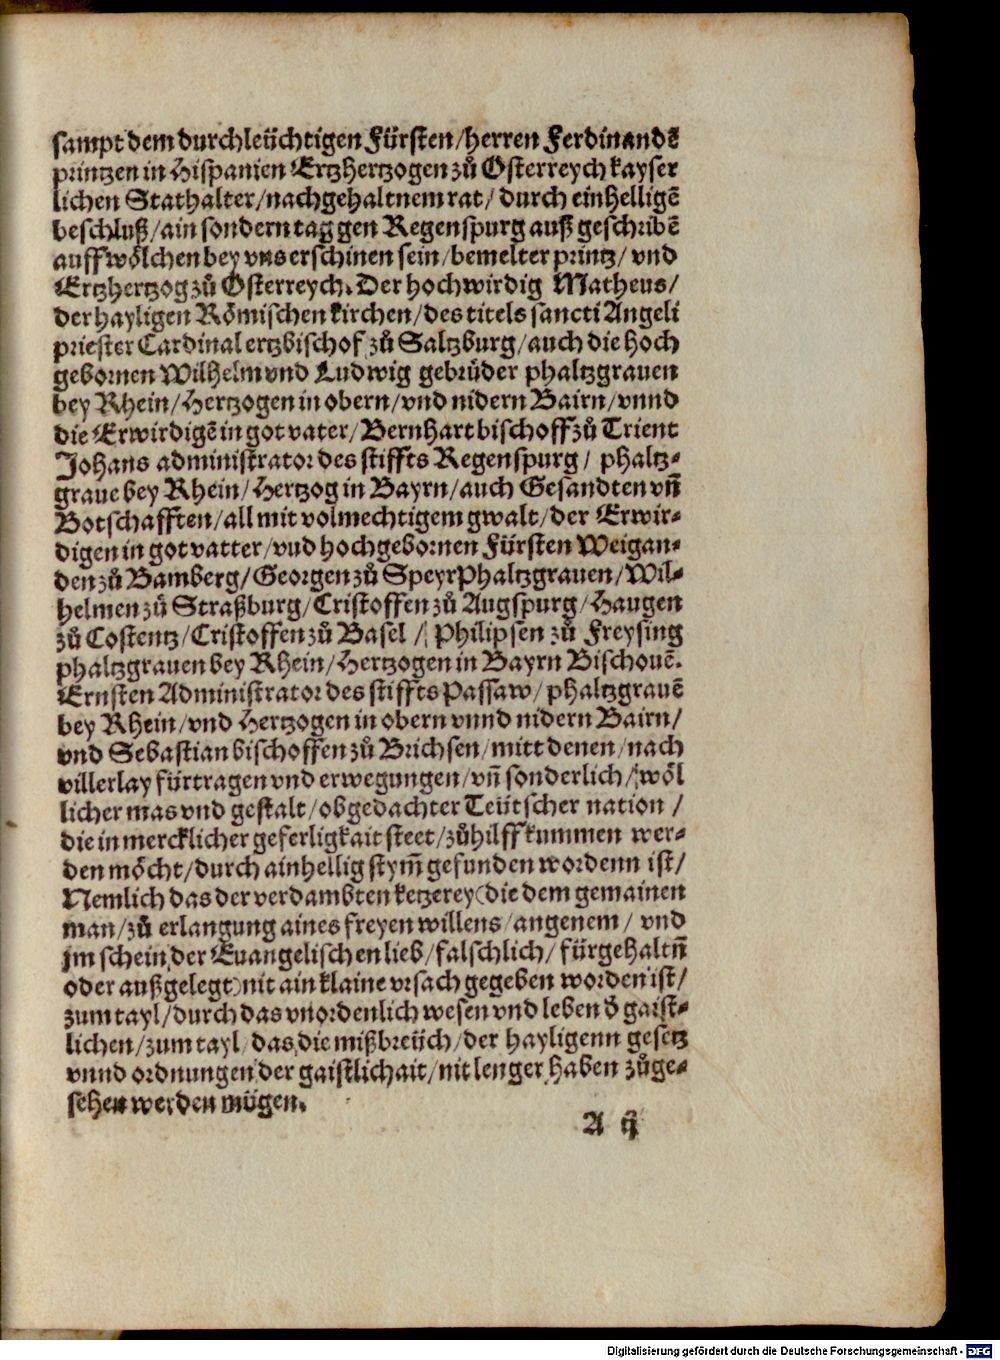 sampt dem durchleüchtigen Fürsten/herren Ferdinandẽ
printzen in Hispanien Ertzhertzogen zů Osterreych kayser
lichen Stathalter/nachgehaltnem rat/ durch einhelligẽ
beschluß/ain sondern tag gen Regenspurg auß geschribẽ
auff wölchen bey vns erschinen sein/bemelter printz/ vnd
Ertzhertzog zů Osterreych. Der hochwirdig Matheus/
der hayligen Römischen kirchen/des titels sancti Angeli
priester Cardinal ertzbischof zů Saltzburg/auch die hoch
gebornen Wilhelm vnd Ludwig gebrüder phaltzgrauen
bey Rhein/Hertzogen in obern/vnd nidern Bairn/vnnd
die Erwirdigẽ in got vater/Bernhart bischoff zů Trient
Johans administrator des stiffts Regenspurg/ phaltz-
graue bey Rhein/Hertzog in Bayrn/auch Gesandten vñ
Botschafften/all mit volmechtigem gwalt/der Erwir-
digen in got vatter/vnd hochgebornen Fürsten Weigan-
den zů Bamberg/Georgen zů Speyr Phaltzgrauen/Wil-
helmen zů Straßburg/Cristoffen zů Augspurg/Haugen
zů Costentz/Cristoffen zů Basel/ Philipsen zů Freysing
phaltzgrauen bey Rhein/Hertzogen in Bayrn Bischouẽ.
Ernsten Administrator des stiffts Passaw/ phaltzgrauẽ
bey Rhein/vnd Hertzogen in obern vnnd nidern Bairn/
vnd Sebastian bischoffen zů Brichsen/mitt denen/nach
villerlay fürtragen vnd erwegungen/vñ sonderlich/wöl
licher mas vnd gestalt/obgedachter Teütscher nation/
die in mercklicher geferligkait steet/zůhilff kummen wer-
den möcht/durch ainhellig stym̃ gefunden wordenn ist/
Nemlich das der verdambten ketzerey (die dem gemainen
man/zů erlangung aines freyen willens/angenem/ vnd
jm schein der Euangelischen lieb/falschlich/ fürgehaltñ
oder außgelegt) nit ain klaine vrsach gegeben worden ist/
zum tayl/durch das vnordenlich wesen vnd leben ð gaist-
lichen/zum tayl/das die mißbreüch/der hayligenn gesetz
vnnd ordnungen der gaistlichait/nit lenger haben zůge-
sehen werden mügen.
A ij
Digitalisierung gefördert durch die Deutsche Forschungsgemeinschaft - DFG